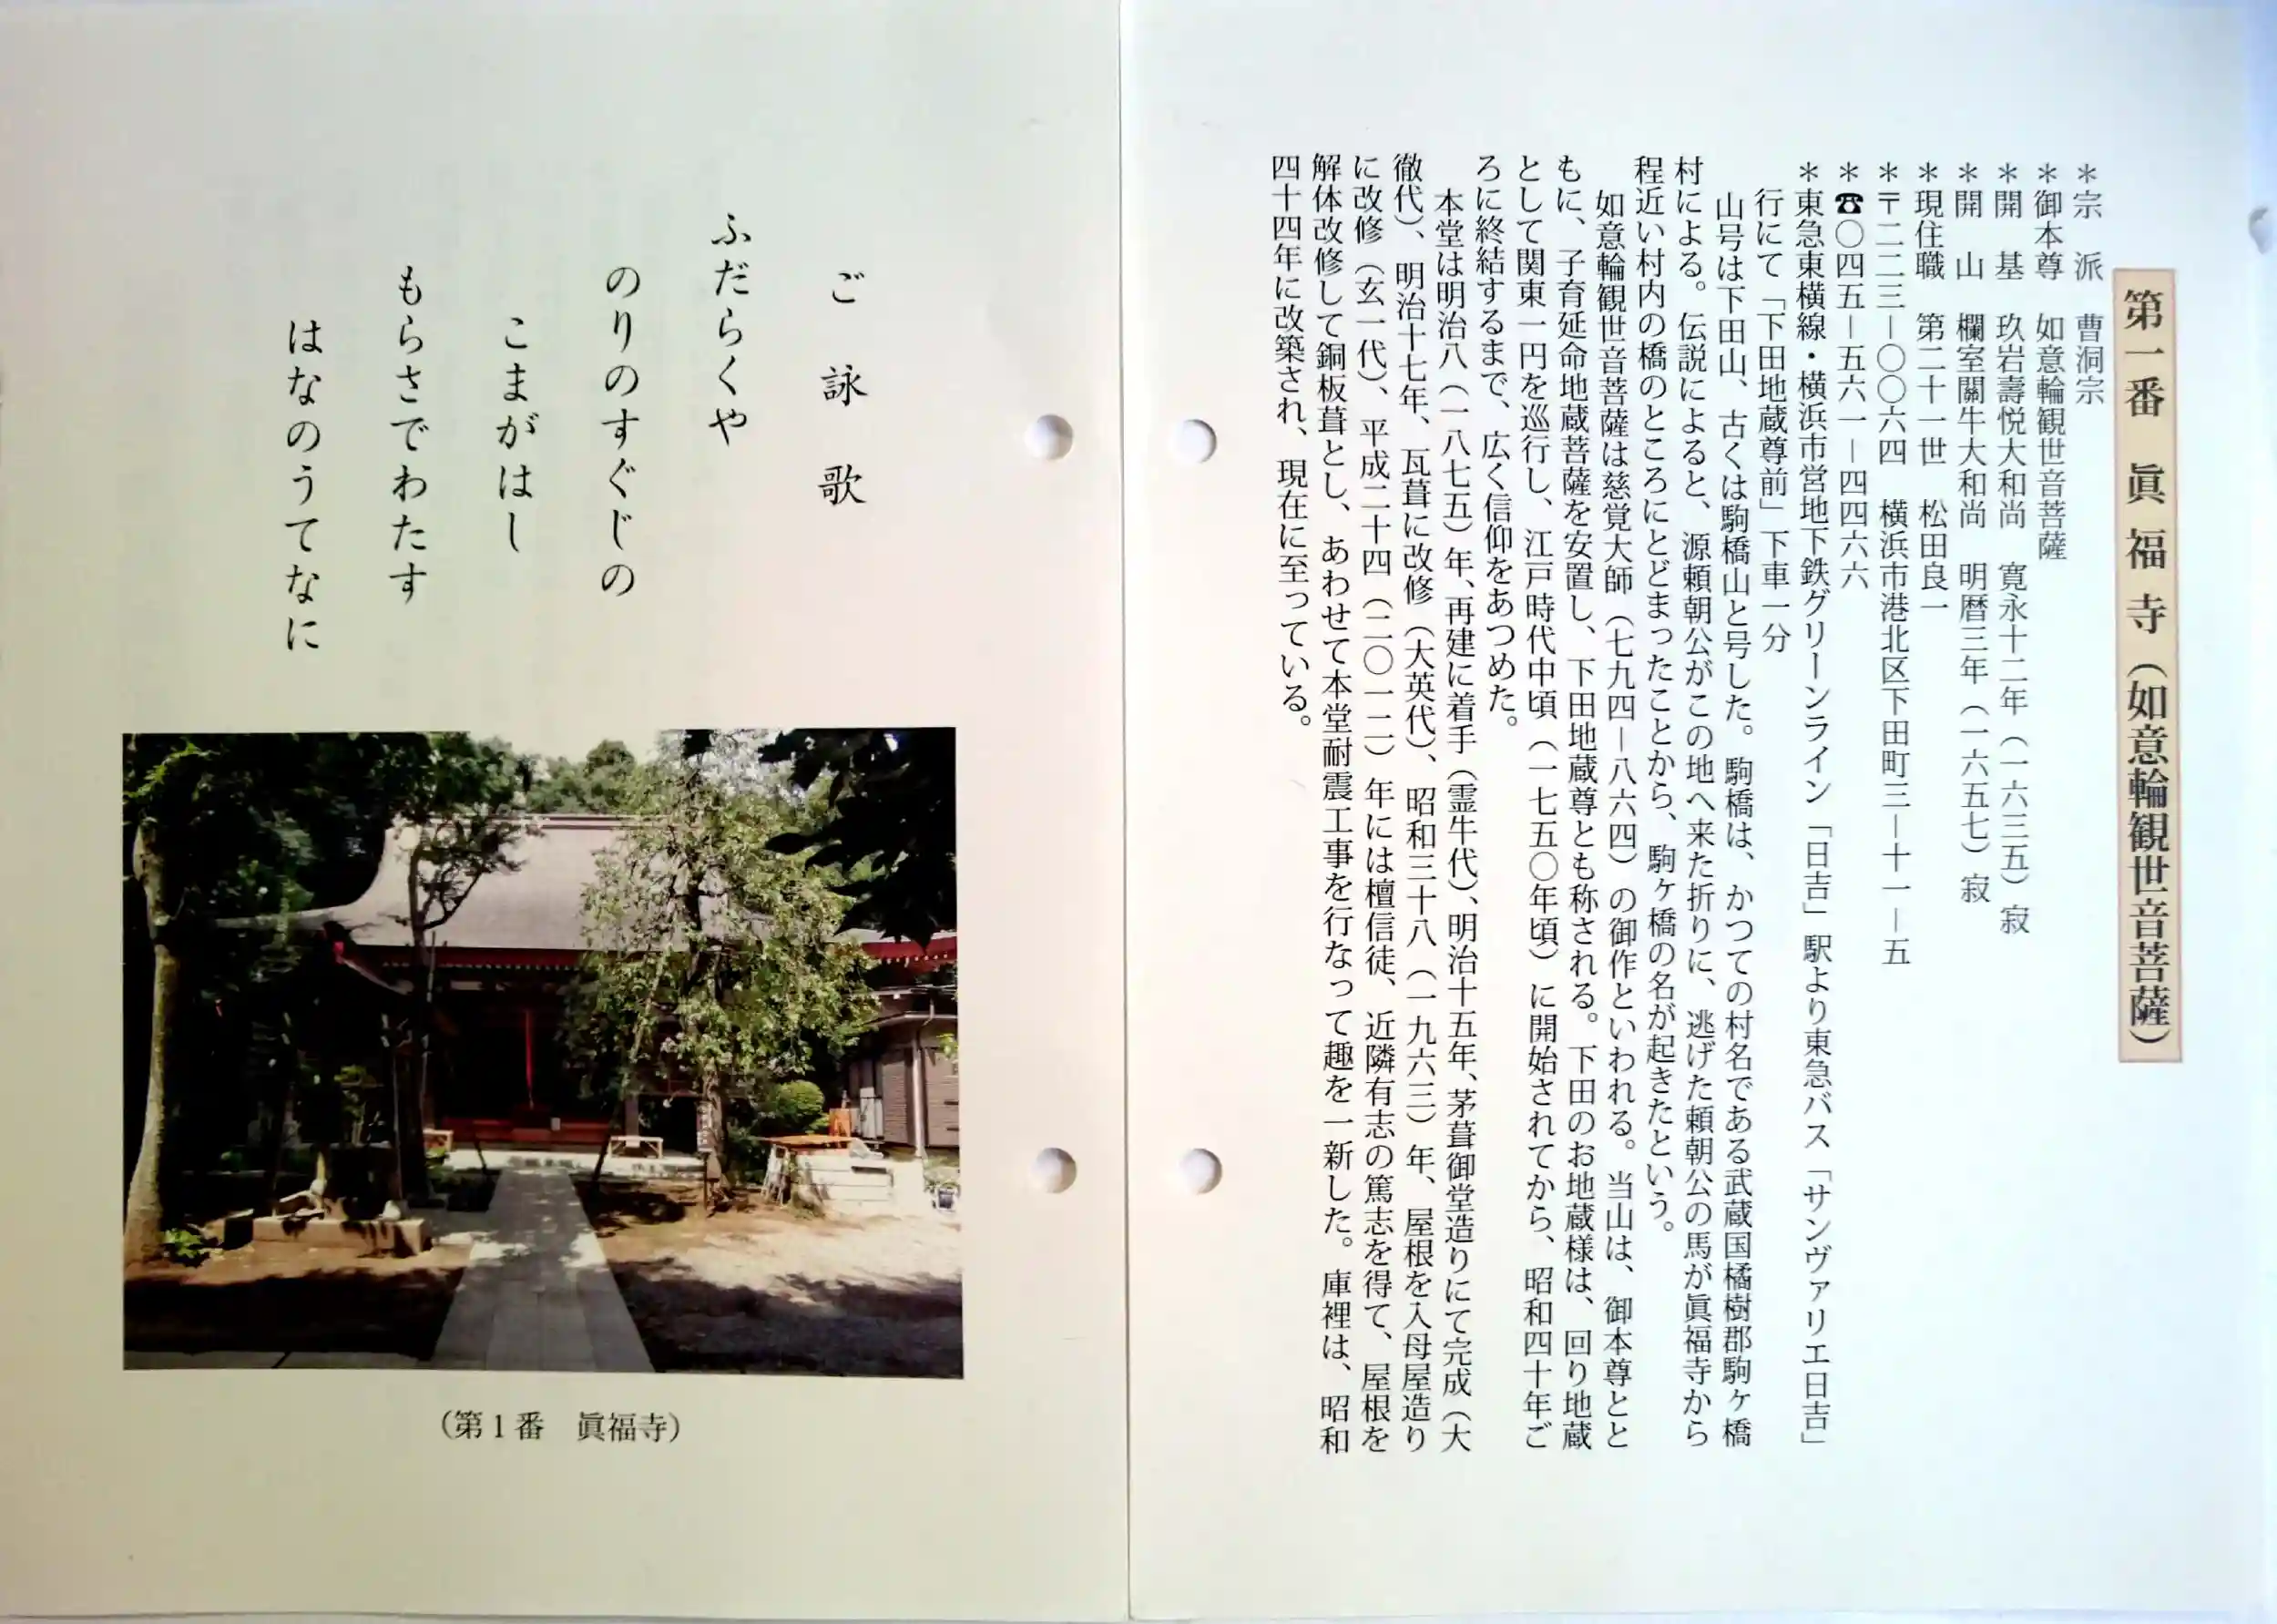 第一番　眞福寺（如意輪観世音菩薩）
＊宗　派　曹洞宗
＊御本尊　如意輪観世音菩薩
＊開　基　玖岩壽悦大和尚　寛永十二年（一六三五）寂
＊開　山　欄室關牛大和尚　明暦三年（一六五七）寂
＊現住職　第二十一世　松田良一
＊〒二二三－〇〇六四　横浜市港北区下田町三－十一－五
＊☎〇四五－五六一－四四六六
＊東急東横線・横浜市営地下鉄グリーンライン「日吉」駅より東急バス「サンヴァリエ日吉」
行にて「下田地蔵尊前」下車一分
山号は下田山、古くは駒橋山と号した。駒橋は、かつての村名である武蔵国橘樹郡駒ヶ橋
村による。伝説によると、源頼朝公がこの地へ来た折りに、逃げた頼朝公の馬が眞福寺から
程近い村内の橋のところにとどまったことから、駒ヶ橋の名が起きたという。
如意輪観世音菩薩は慈覚大師（七九四－八六四）の御作といわれる。当山は、御本尊とと
もに、子育延命地蔵菩薩を安置し、下田地蔵尊とも称される。下田のお地蔵様は、回り地蔵
として関東一円を巡行し、江戸時代中頃（一七五〇年頃）に開始されてから、昭和四十年ご
ろに終結するまで、広く信仰をあつめた。
本堂は明治八（一八七五）年、再建に着手（霊牛代）、明治十五年、茅葺御堂造りにて完成（大
徹代）、明治十七年、瓦葺に改修（大英代）、昭和三十八（一九六三）年、屋根を入母屋造り
に改修（玄一代）、平成二十四（二〇一二）年には檀信徒、近隣有志の篤志を得て、屋根を
解体改修して銅板葺とし、あわせて本堂耐震工事を行なって趣を一新した。庫裡は、昭和
四十四年に改築され、現在に至っている。
ご詠歌
ふだらくや
のりのすぐじの
こまがはし
もらさでわたす
はなのうてなに
（第１番　眞福寺）